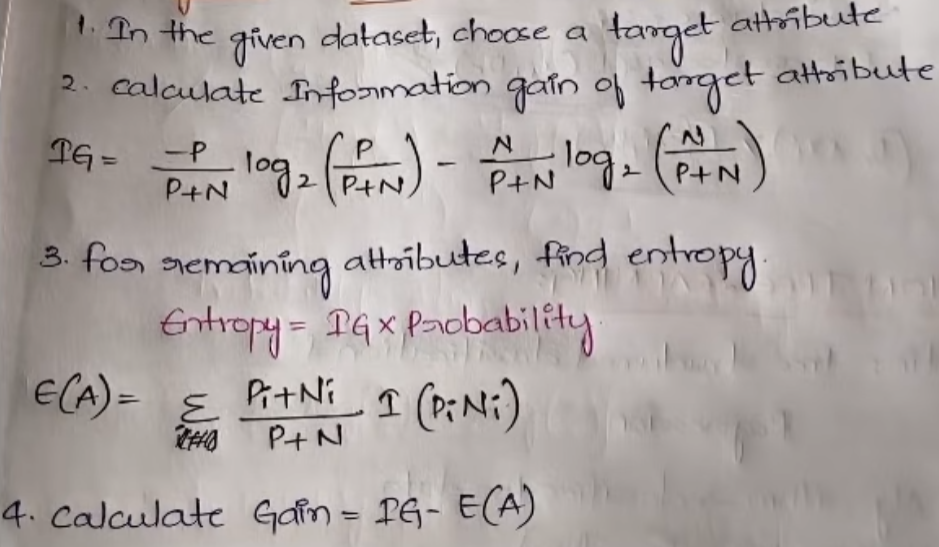 1. In the given dataset, choose a target attribute
2. calculate Information gain of target attribute
IG = -P/P+N log₂ (P/P+N) - N/P+N log₂ (N/P+N)
3. for remaining attributes, find entropy.
Entropy = IG × Probability.
E(A) = Σ Pi+Ni/P+N I (PiNi)
4. calculate Gain = IG - E(A)